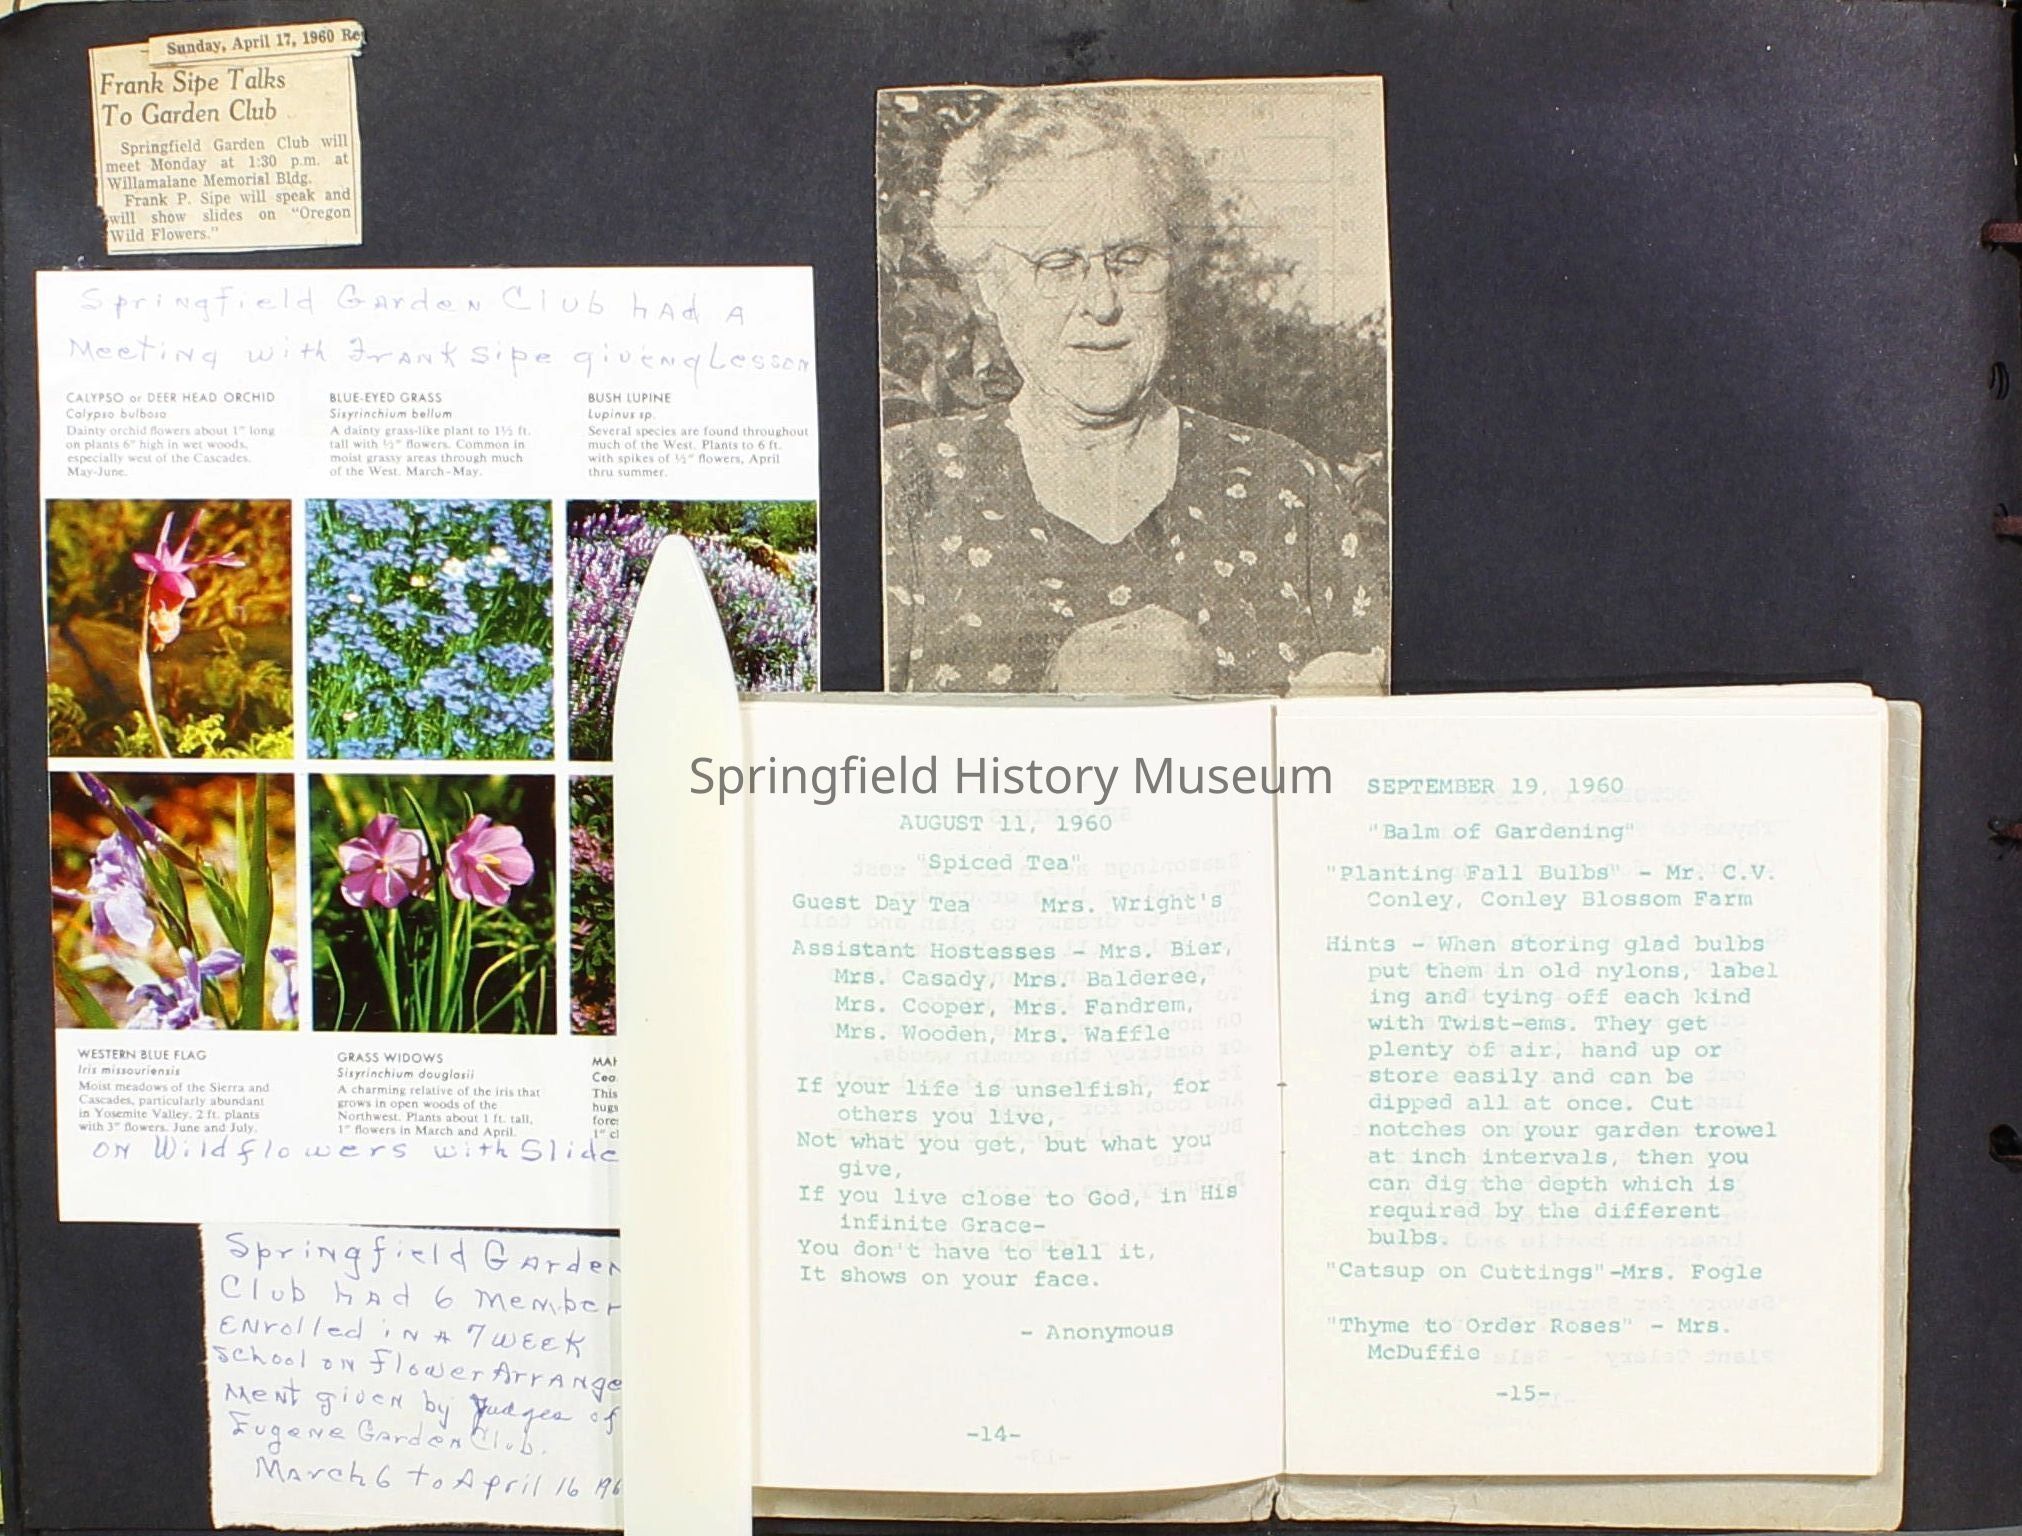 Sunday, April 17, 1960
Frank Sipe Talks
To Garden Club
Springfield Garden Club will
meet Monday at 1:30 p.m. at
Willamalane Memorial Bldg.
Frank P. Sipe will speak and
will show slides on "Oregon
Wild Flowers."
Springfield Garden Club had a
Meeting with Frank Sipe giveng Lesson
CALYPSO or DEER HEAD ORCHID
Calypso bulbosa
Dainty orchid flowers about 1" long
on plants 6" high in wet woods,
especially west of the Cascades.
May-June.
BLUE-EYED GRASS
Sisyrinchium bellum
A dainty grass-like plant to 1½ ft.
tall with ½" flowers. Common in
moist grassy areas through much
of the West. March-May.
BUSH LUPINE
Lupinus sp.
Several species are found throughout
much of the West. Plants to 6 ft.
with spikes of ½" flowers, April
thru summer.
WESTERN BLUE FLAG
Iris missouriensis
Moist meadows of the Sierra and
Cascades, particularly abundant
in Yosemite Valley. 2 ft. plants
with 3" flowers. June and July.
GRASS WIDOWS
Sisyrinchium douglasii
A charming relative of the iris that
grows in open woods of the
Northwest. Plants about 1 ft. tall,
1" flowers in March and April.
This
hugs
on Wildflowers with Slide
Springfield Garden
Club had 6 member
Enrolled in a 7 week
School on Flower Arrange
ment given by Judges of
Eugene Garden Club.
March 6 to April 16 196
Springfield History Museum
AUGUST 11, 1960
"Spiced Tea"
Guest Day Tea Mrs. Wright's
Assistant Hostesses - Mrs. Bier,
Mrs. Casady, Mrs. Balderee,
Mrs. Cooper, Mrs. Fandrem,
Mrs. Wooden, Mrs. Waffle
If your life is unselfish, for
others you live,
Not what you get, but what you
give,
If you live close to God, in His
infinite Grace-
You don't have to tell it,
It shows on your face.
- Anonymous
-14-
SEPTEMBER 19, 1960
"Balm of Gardening"
"Planting Fall Bulbs" - Mr. C.V.
Conley, Conley Blossom Farm
Hints - When storing glad bulbs
put them in old nylons, label
ing and tying off each kind
with Twist-ems. They get
plenty of air, hand up or
store easily and can be
dipped all at once. Cut
notches on your garden trowel
at inch intervals, then you
can dig the depth which is
required by the different
bulbs.
"Catsup on Cuttings"-Mrs. Fogle
"Thyme to Order Roses" - Mrs.
McDuffie
-15-